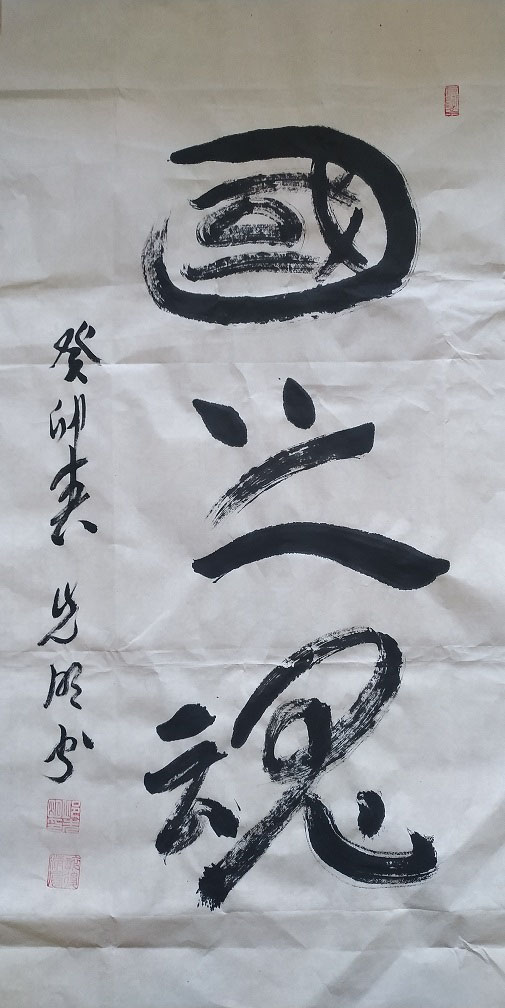 國之魂
癸卯春 先明书